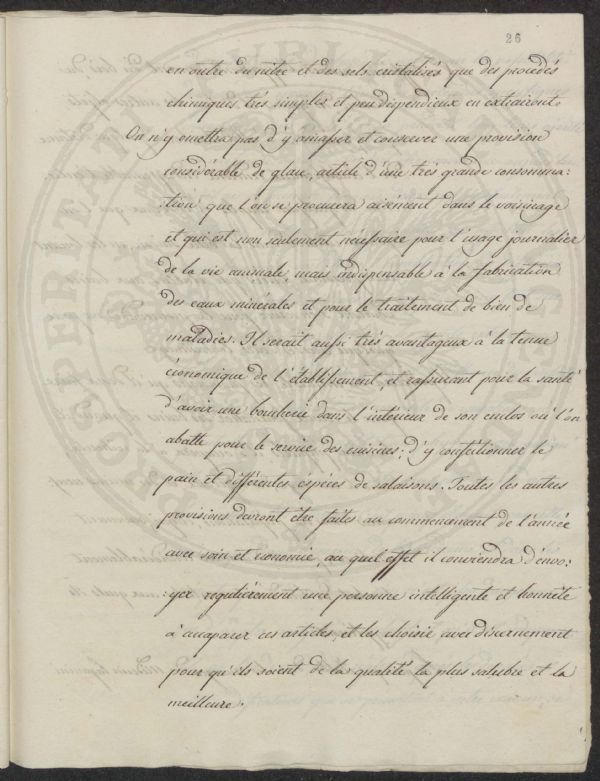 26
en outre du nitre et des sels cristalisés que des procédés
chimiques très simples et peu dispendieux en extairont.
On n'y omettra pas d'y amasser et conserver une provision
considérable de glace, article d'une très grande consomma:
:tion que l'on se procurera aisément dans le voisinage
et qui est non seulement nécessaire pour l'usage journalier
de la vie animale, mais indispensable à la fabrication
des eaux minérales et pour le traitement de bien de
maladies. Il serait aussi très avantageux à la tenue
économique de l'établissement, et rassurant pour la santé
d'avoir une boucherie dans l'intérieur de son enclos où l'on
abatte pour le service des cuisines; d'y confectionner le
pain et différentes espèces de salaisons. Toutes les autres
provisions devront être faites au commencement de l'année
avec soin et économie, au quel effet il conviendra d'envo:
:yer regulièrement une personne intelligente et honnête
à accaparer ces articles, et les choisir avec discernement
pour qu'ils soient de la qualité la plus salubre et la
meilleure.
PROSPERITATI PUBLICAE